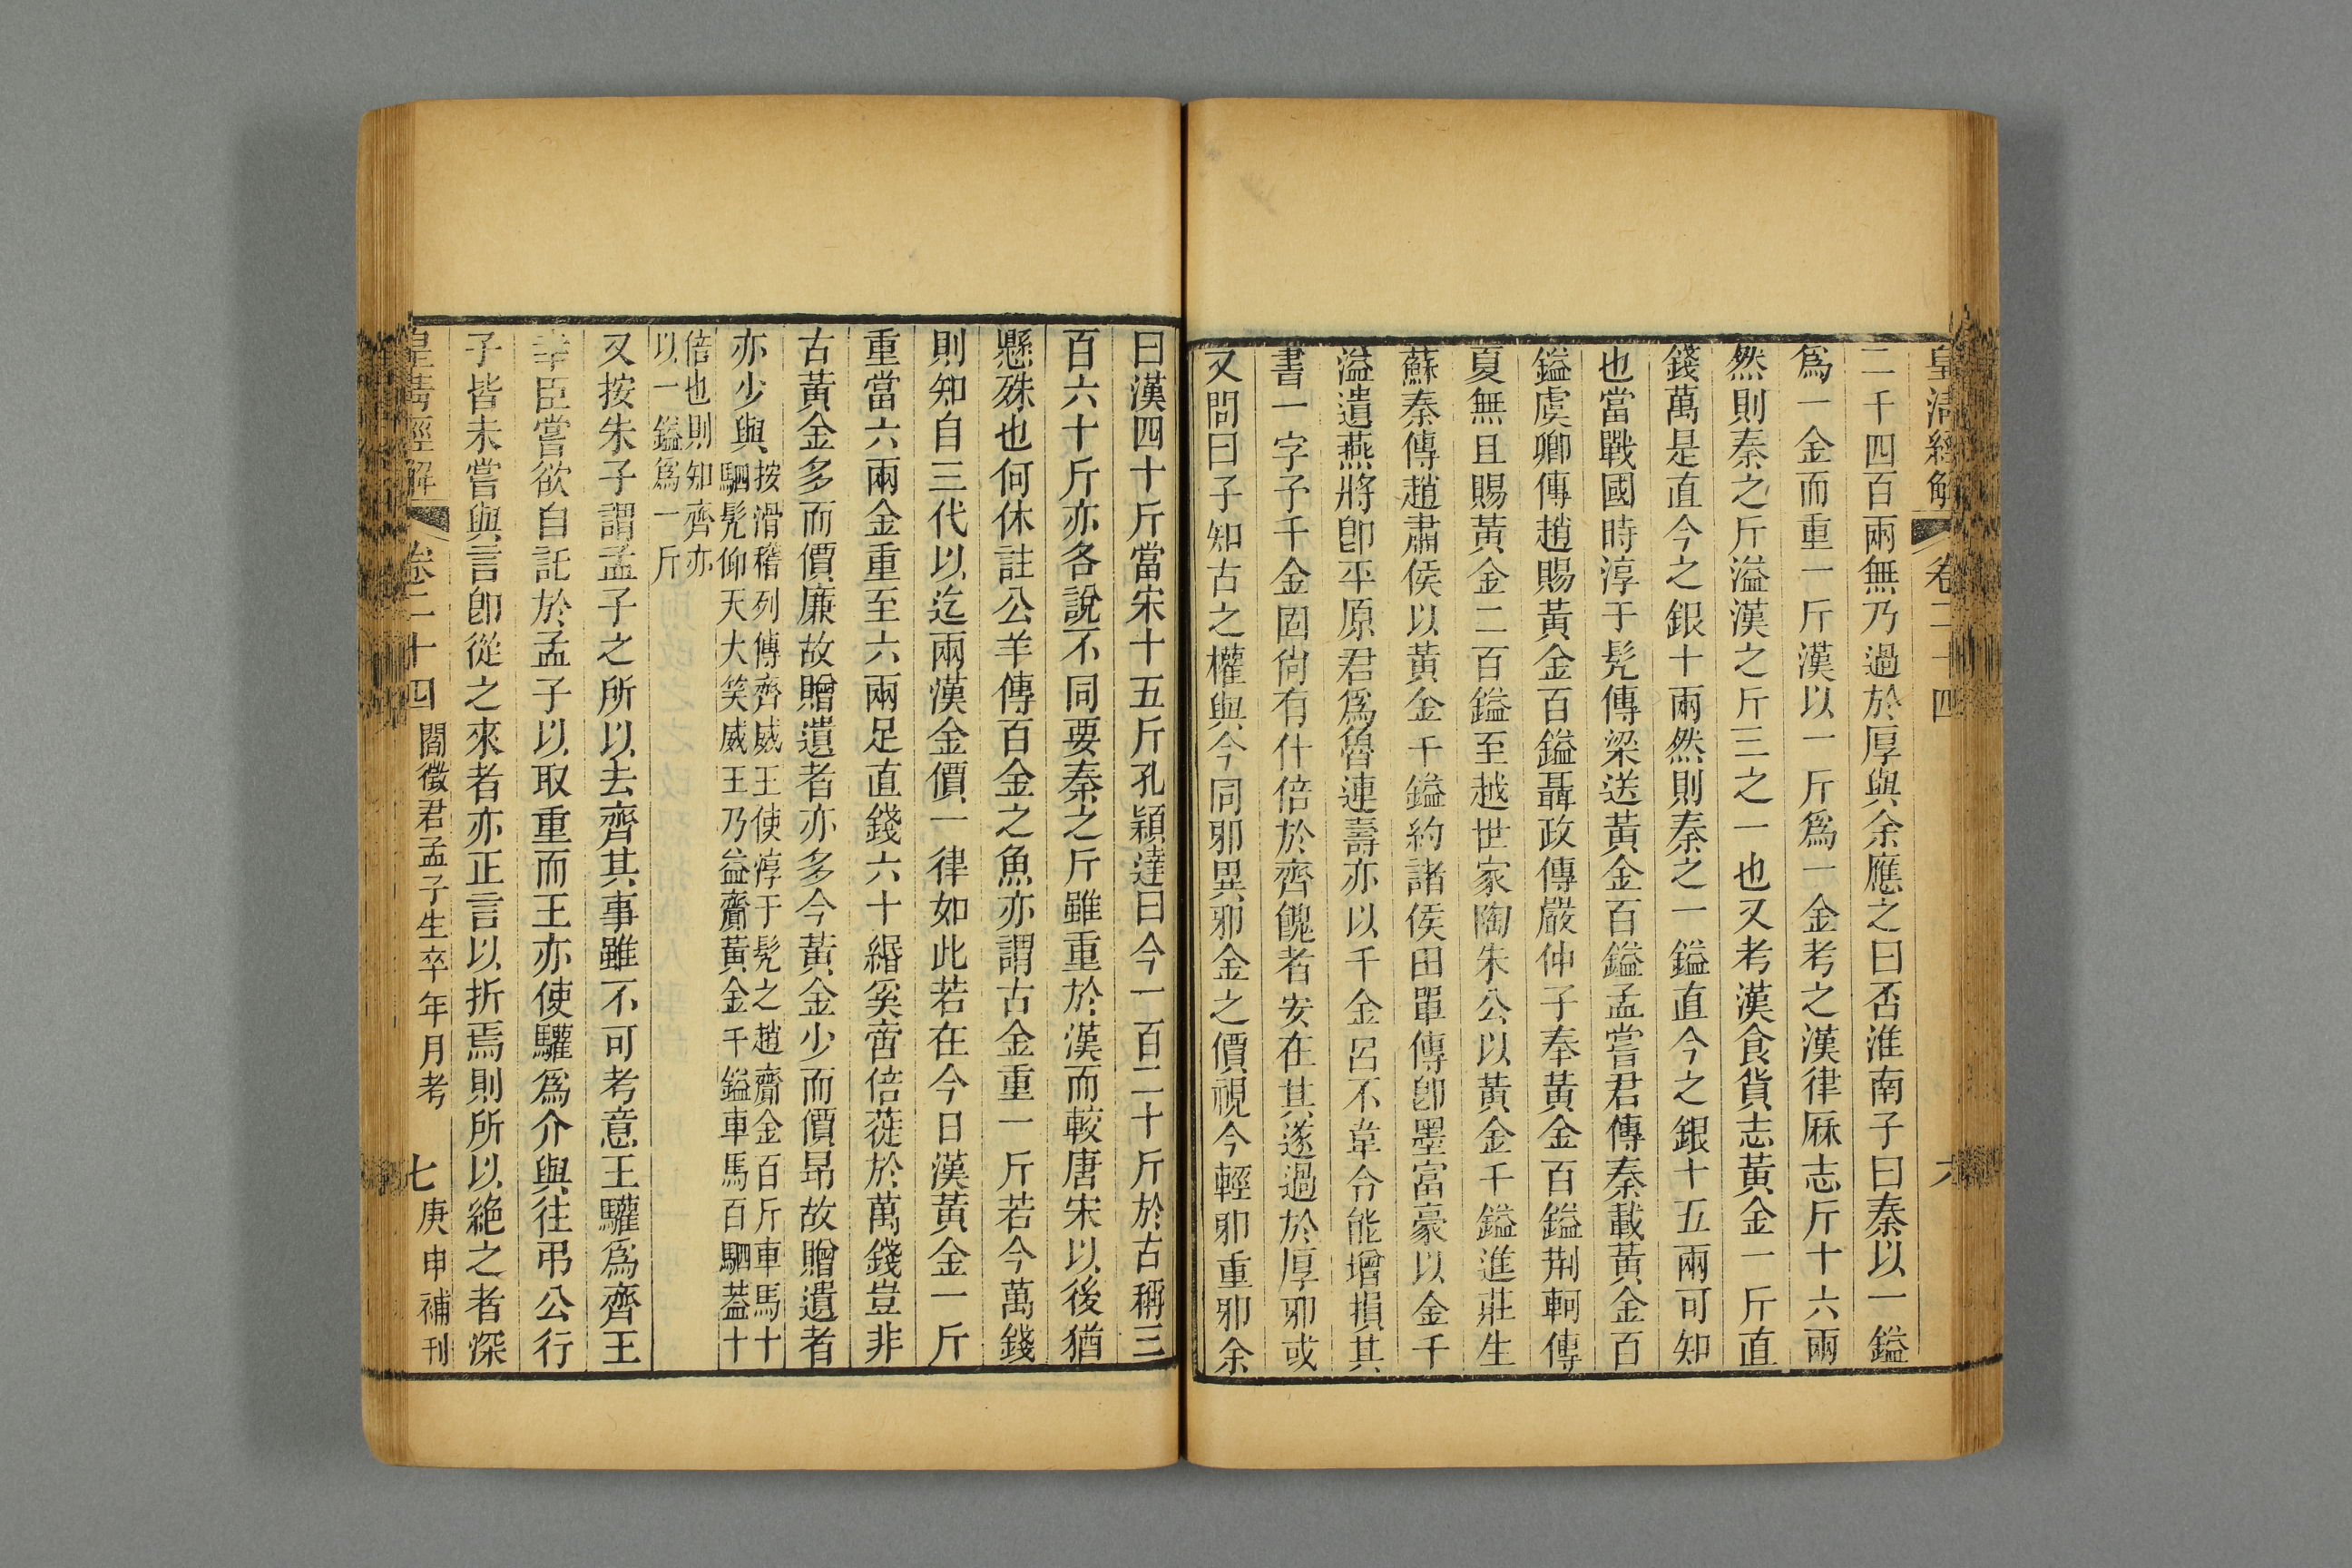 皇清經解 卷二十四 六
二千四百兩無乃過於厚與余應之曰否淮南子曰秦以一鎰
爲一金而重一斤漢以一斤爲一金考之漢律厤志斤十六兩
然則秦之斤溢漢之斤三之一也又考漢食貨志黃金一斤直
錢萬是直今之銀十兩然則秦之一鎰直今之銀十五兩可知
也當戰國時淳于髠傳梁送黃金百鎰孟嘗君傳秦載黃金百
鎰虞卿傳趙賜黃金百鎰聶政傳嚴仲子奉黃金百鎰荆軻傳
夏無且賜黃金二百鎰至越世家陶朱公以黃金千鎰進莊生
蘇秦傳趙肅侯以黃金千鎰約諸侯田單傳卽墨富豪以金千
溢遺燕將卽平原君爲魯連壽亦以千金呂不韋令能增損其
書一字予千金固尙有什倍於齊餽者安在其遂過於厚邪或
又問曰子知古之權與今同邪異邪金之價視今輕邪重邪余
曰漢四十斤當宋十五斤孔穎達曰今一百二十斤於古稱三
百六十斤亦各說不同要秦之斤雖重於漢而較唐宋以後猶
懸殊也何休註公羊傳百金之魚亦謂古金重一斤若今萬錢
則知自三代以迄兩漢金價一律如此若在今日漢黃金一斤
重當六兩金重至六兩足直錢六十緡奚啻倍蓰於萬錢豈非
古黃金多而價廉故贈遺者亦多今黃金少而價昻故贈遺者
亦少與按滑稽列傳齊威王使淳于髠之趙齎金百斤車馬十
駟髠仰天大笑威王乃益齎黃金千鎰車馬百駟葢十
倍也則知齊亦
以一鎰爲一斤
又按朱子謂孟子之所以去齊其事雖不可考意王驩爲齊王
幸臣嘗欲自託於孟子以取重而王亦使驩爲介與往弔公行
子皆未嘗與言卽從之來者亦正言以折焉則所以絶之者深
皇淸經解 卷二十四 閻徵君孟子生卒年月考 七 庚申補刊